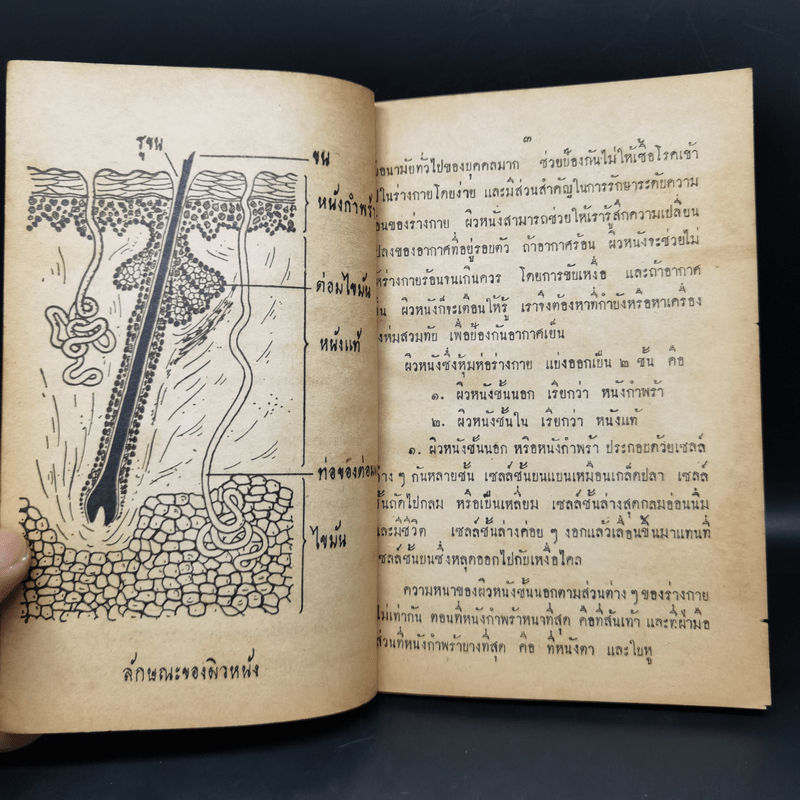 รูขน
ขน
หนังกำพร้า
ต่อมไขมัน
หนังแท้
ท่อของต่อม
ไขมัน
ลักษณะของผิวหนัง
๓
อนามัยทั่วไปของบุคคลมาก ช่วยป้องกันไม่ให้เชื้อโรคเข้า
ในร่างกายโดยง่าย และมีส่วนสำคัญในการรักษาระดับความ
ของร่างกาย ผิวหนังสามารถช่วยให้เรารู้สึกความเปลี่ยน
แปลงของอากาศที่อยู่รอบตัว ถ้าอากาศร้อน ผิวหนังจะช่วยไม่
ให้ร่างกายร้อนจนเกินควร โดยการขับเหงื่อ และถ้าอากาศ
ผิวหนังก็จะเตือนให้รู้ เราจึงต้องหาที่กำบังหรือหาเครื่อง
นุ่งห่มสวมทับ เพื่อป้องกันอากาศเย็น
ผิวหนังซึ่งหุ้มห่อร่างกาย แบ่งออกเป็น ๒ ชั้น คือ
๑. ผิวหนังชั้นนอก เรียกว่า หนังกำพร้า
๒. ผิวหนังชั้นใน เรียกว่า หนังแท้
๑. ผิวหนังชั้นนอก หรือหนังกำพร้า ประกอบด้วยเซลล์
ต่าง ๆ กันหลายชั้น เซลล์ชั้นบนแบนเหมือนเกล็ดปลา เซลล์
ชั้นถัดไปกลม หรือเป็นเหลี่ยม เซลล์ชั้นล่างสุดกลมอ่อนนิ่ม
และมีชีวิต เซลล์ชั้นล่างค่อย ๆ งอกแล้วเลื่อนขึ้นมาแทนที่
เซลล์ชั้นบนซึ่งหลุดออกไปกับเหงื่อไคล
ความหนาของผิวหนังชั้นนอกตามส่วนต่าง ๆ ของร่างกาย
ไม่เท่ากัน ตอนที่หนังกำพร้าหนาที่สุด คือที่ส้นเท้า และที่ฝ่ามือ
ส่วนที่หนังกำพร้าบางที่สุด คือ ที่หนังตา และใบหู